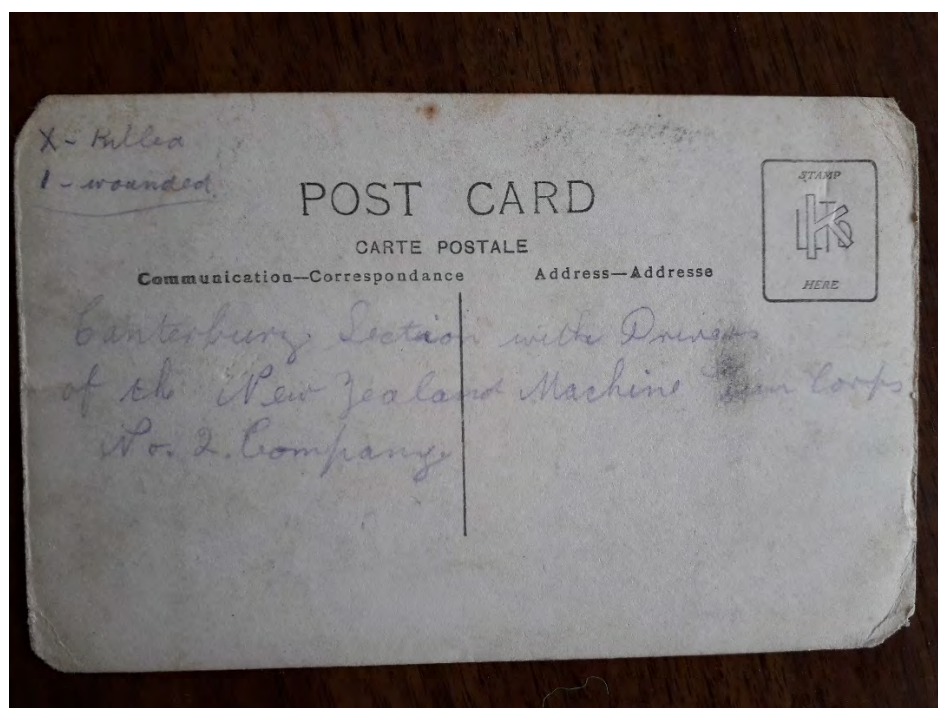 X - Killed
1 - wounded
POST CARD
CARTE POSTALE
Communication—Correspondance
Address—Addresse
STAMP
HERE
Canterbury Section with Drivers
of the New Zealand Machine Gun Corps.
No. 2. Company